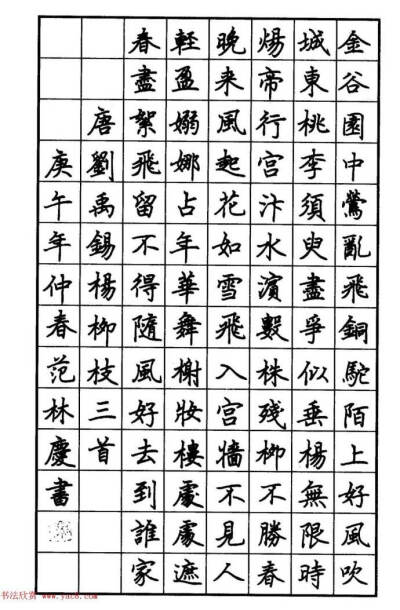 金谷園中鶯亂飛銅駝陌上好風吹
城東桃李須臾盡爭似垂楊無限時
煬帝行宮汴水濱數株殘柳不勝春
晚来風起花如雪飛入宮墻不見人
輕盈嫋娜占年華舞榭妝樓處處遮
春盡絮飛留不得隨風好去到誰家
唐劉禹錫楊柳枝三首
庚午年仲春范林慶書
书法欣赏 www.yac8.com